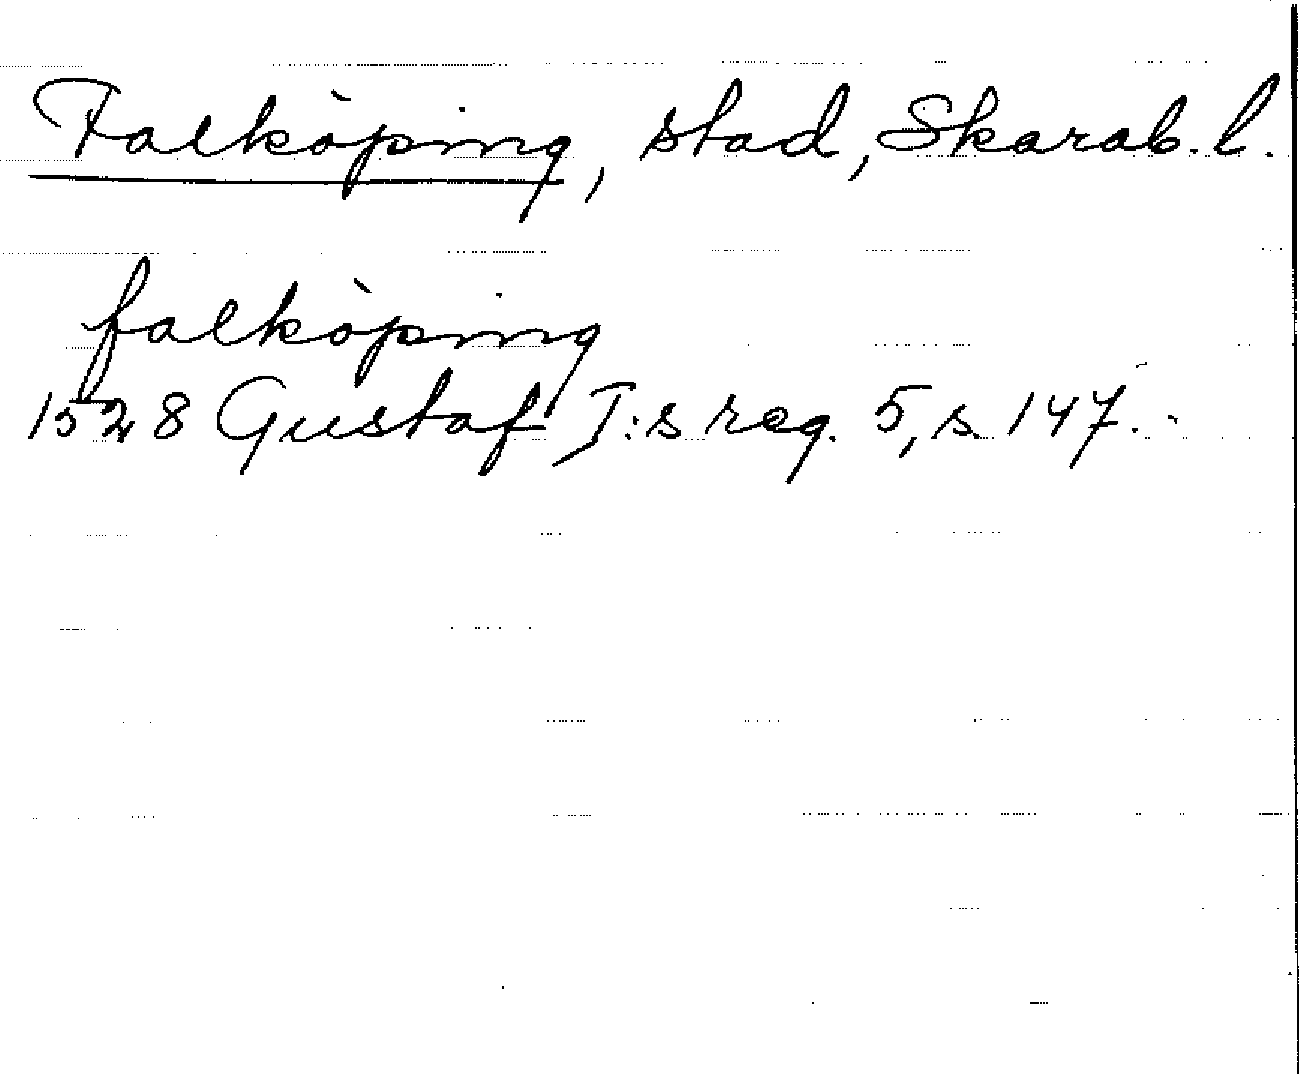 Falköping, stad, Skarab. l.
falköping
1528 Gustaf I:s reg. 5, s. 147.